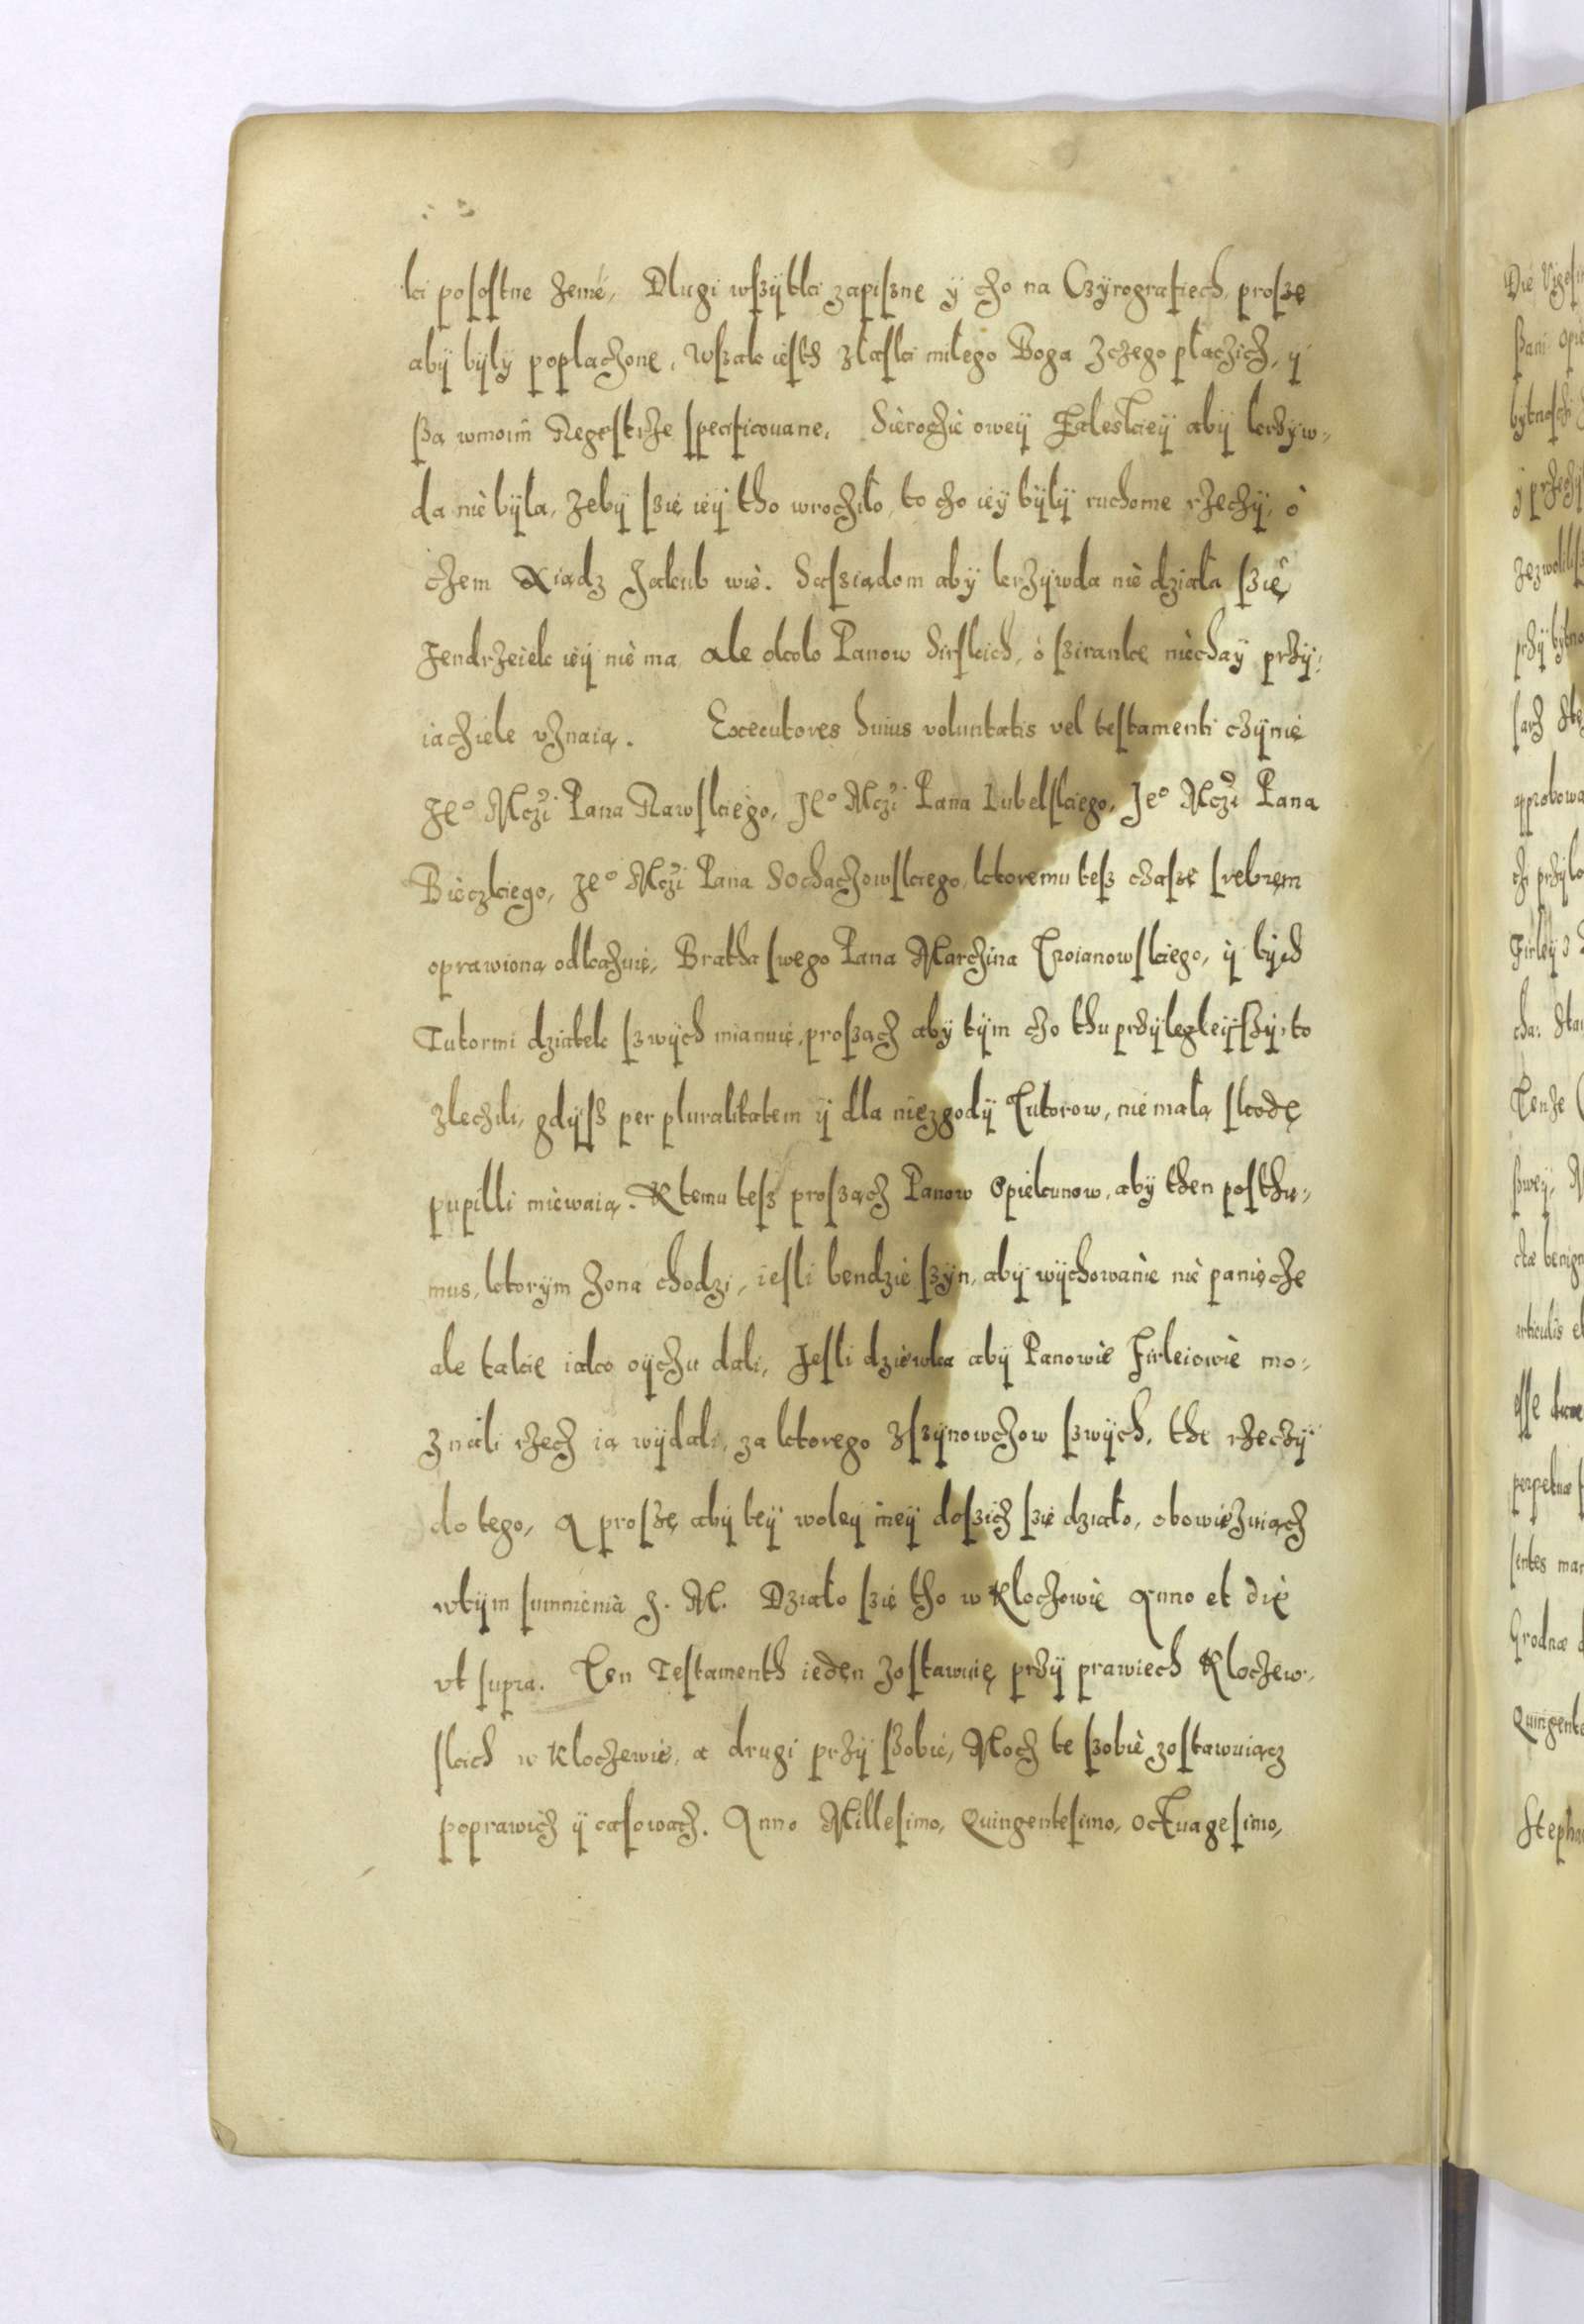 ki posostne zemie, Dlugi wszÿtki zapiszne ÿ czo na Czÿrografiech, prosze
abÿ bÿlÿ poplaczone, Wszak iesth złaski miłego Boga zczego płaczicz, ÿ
sza wmoim Regestrze specificowane, Sierocie oweÿ Zaleskieÿ abÿ krzÿw-
da nie bÿla, zebÿ szie ieÿ tho wrocziło, to czo ieÿ bÿlÿ ruchome rzeczÿ, o
czem Xiądz Jakub wie. Sasziadom abÿ krzÿwda nie działa szie
Jendrzeiek ieÿ nie ma, ale około Panow Sirskich, o sziranke niechaÿ przÿ-
iaciele vznaią. Executores huius voluntatis vel testamenti czÿnie
Jeº Mczi Pana Rawskiego, Jeº Mczi Pana Lubelskiego, Jeº Mczi Pana
Bieczkiego, Jeº Mczi Pana Sochaczowskiego, ktoremu tesz czasze srebrem
oprawiona odkazuie, Bratha swego Pana Marczina Troianowskiego, ÿ bÿcz
Tutormi dziatek szwÿch mianuie, proszacz abÿ tÿm czo thu przÿlegleÿszÿ, to
zleczili, gdÿsz per pluralitatem ÿ dla niezgodÿ Tutorow, nie mała skode
pupilli miewaią. Ktemu tesz proszącz Panow Opiekunow, abÿ then posthu-
mus, ktorÿm zona chodzi, iesli bendzie szÿn, abÿ wÿchowanie nie panięcze
ale takie iako oÿczu dali, Jesli dziewka abÿ Panowie Firleiowie mo-
znali rzecz ia wÿdali, za ktorego zszÿnowczow szwÿch, the rzeczÿ
do tego, A prosze abÿ teÿ woleÿ meÿ doszicz szie działo, obowiezuiącz
wtÿm sumnienia J. M. Działo szie tho w Kloczowie Anno et die
vt supra. Ten Testamenth ieden zostawuię przÿ prawiech Kloczew-
skich w Kloczewie, a drugi przÿ szobie, Mocz te szobie zostawuiącz
poprawicz ÿ casowacz. Anno Millesimo, Quingentesimo, Octuagesimo,